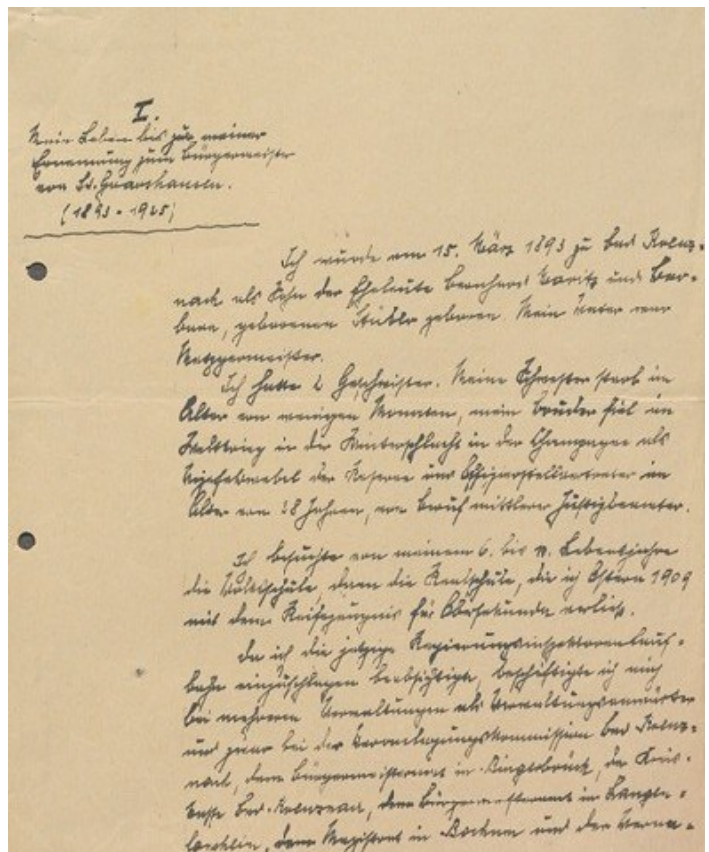 I.
Mein Leben bis zu meiner
Ernennung zum Bürgermeister
von St. Goarshausen.
(1893-1925)
Ich wurde am 15. März 1893 zu Bad Kreuz-
nach als Sohn der Eheleute Bernhard und Bar-
bara, geborenen geboren. Mein Vater war
Metzgermeister.
Ich hatte 2 Geschwister. Meine Schwester starb im
Alter von wenigen Monaten, mein Bruder fiel im
Weltkrieg in der Winterschlacht in der Champagne als
Vizefeldwebel der Reserve und Offizierstellvertreter im
Alter von 28 Jahren, von Beruf mittlerer Justizbeamter.
Ich besuchte von meinem 6. bis Lebensjahre
die Volksschule, dann die Realschule, die ich Ostern 1909
mit dem Reifezeugnis für Obersekunda verließ.
Da ich die jetzige Regierungsinspektorenlauf-
bahn einzuschlagen beabsichtigte, beschäftigte ich mich
bei mehreren Verwaltungen als Verwaltungsanwärter
und zwar bei der Veranlagungskommission Bad Kreuz-
nach, dem Bürgermeisteramt in Bingerbrück, der Kreis-
kasse Bad-Kreuznach, dem Bürgermeisteramt in Langen-
lonsheim, dem Magistrat in Bochum und der